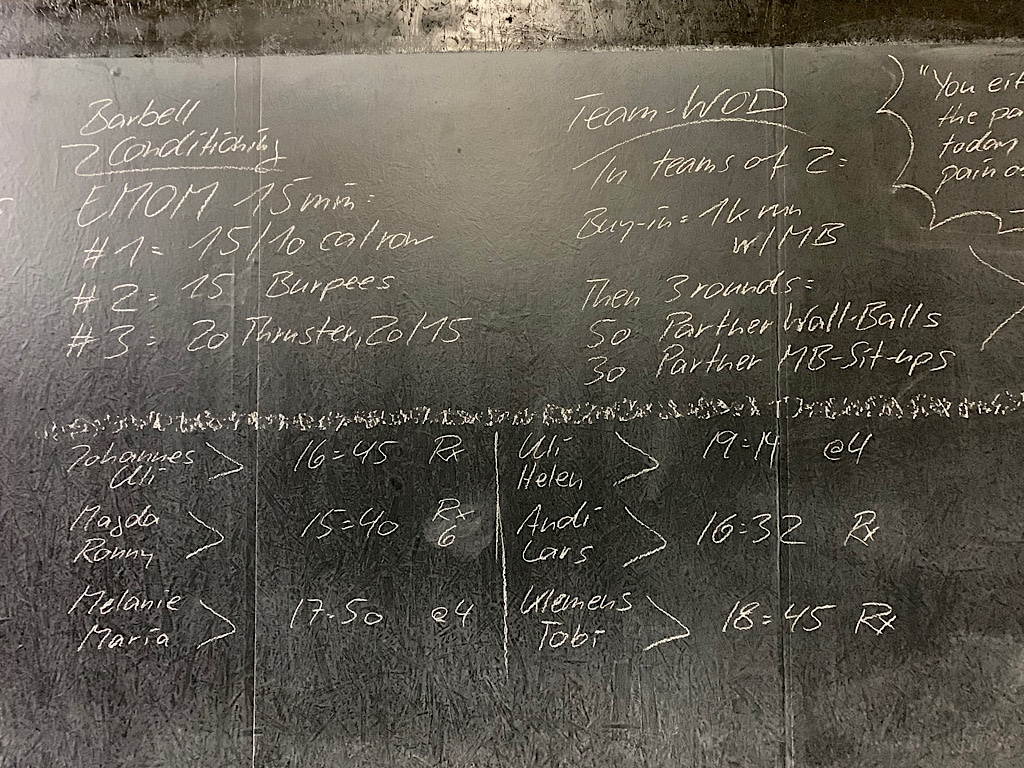 Barbell
2 Conditioning
EMOM 15min:
#1: 15/10 cal row
#2: 15 Burpees
#3: 20 Thruster, 20/15
Team-WOD
In teams of 2:
Buy-in: 1k run
w/MB
Then 3 rounds:
50 Partner Wall-Balls
30 Partner MB-Sit-ups
"You eit
the pa
today
pain o
Johannes
Uli
16:45 Rx
Magda
Ronny
15:40 Rx
6
Melanie
Maria
17:50 @4
Uli
Helen
19:14 @4
Andi
Lars
16:32 Rx
Klemens
Tobi
18:45 Rx